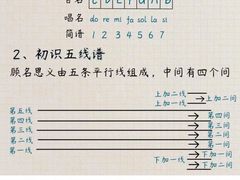 音名 C D E F G A B
唱名 do re mi fa sol la si
简谱 1 2 3 4 5 6 7
2、初识五线谱
顾名思义由五条平行线组成，中间有四个间
上加二线
上加二间
上加一线
上加一间
第五线
第四线 第四间
第三线 第三间
第二线 第二间
第一线 第一间
下加一线 下加一间
下加二间